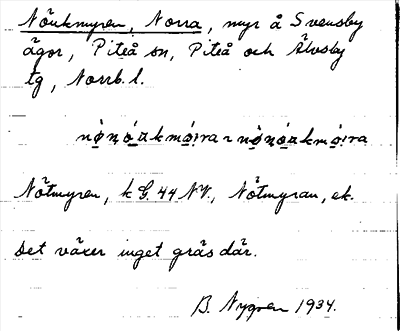 Nöukmyren, Norra, myr å Svensby
ägor, Piteå sn, Piteå och Älvsby
tg, Norrb. l.
Nötmyren, k G. 44 NV, Nötmyran, ek.
Det växer inget gräs där.
B. Nygren 1934.